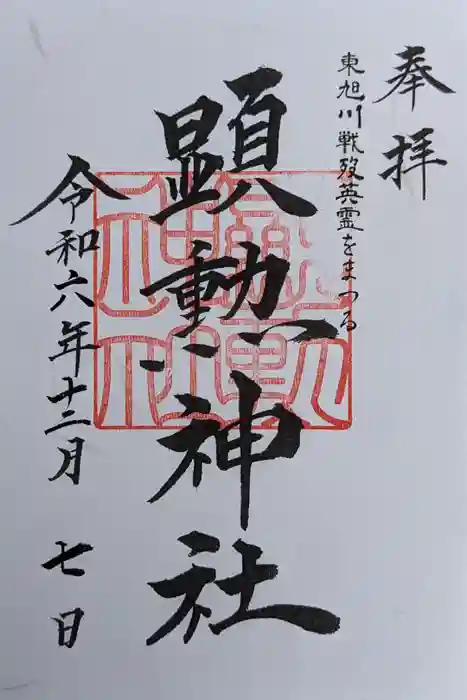 奉拝
東旭川戦歿英霊をまつる
顕勲神社
令和六年十二月七日